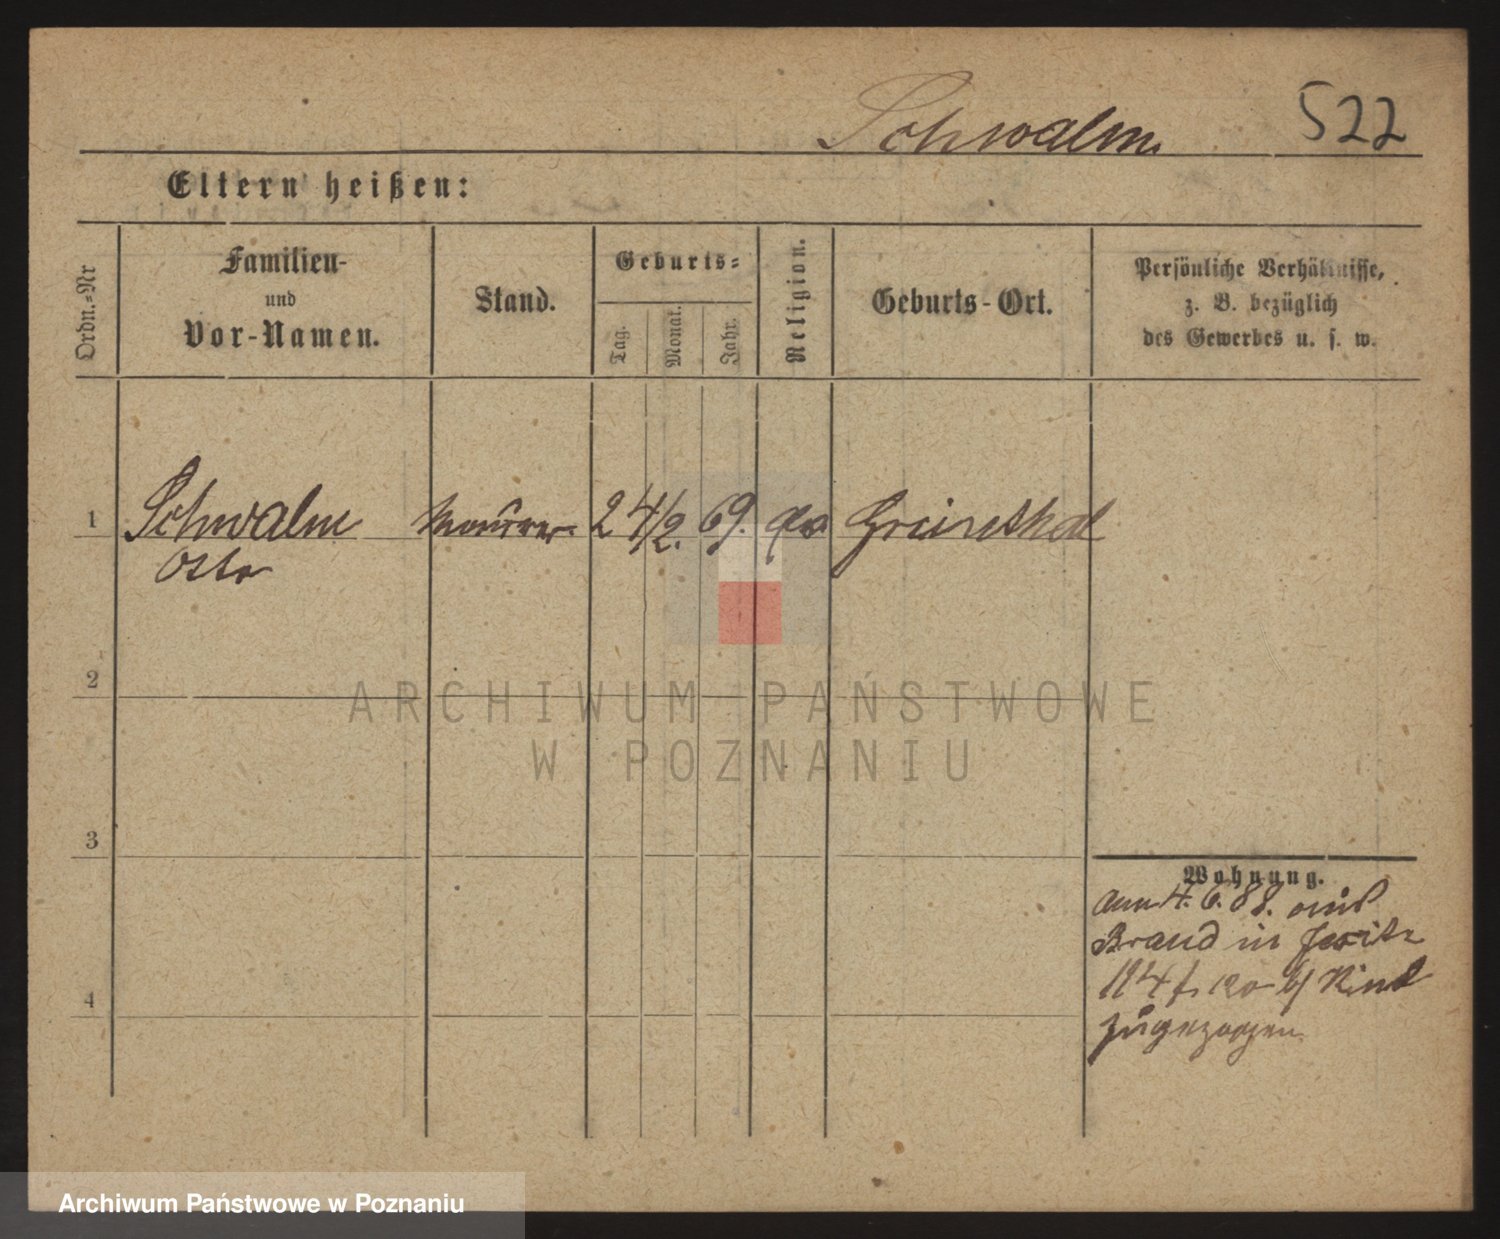 Schwalm
522
Eltern heißen:
Ordn.=Nr
Familien-
und
Vor-Namen.
Stand.
Geburts=
Tag.
Monat.
Jahr.
Religion.
Geburts-Ort.
Persönliche Verhältnisse,
z. B. bezüglich
des Gewerbes u. s. w.
1
Schwalm
Otto
Maurer
24/2. 69.
2
3
4
Wohnung.
4. 6. 88.
Brand in Jersitz
Kind
zugezogen
ARCHIWUM PAŃSTWOWE
W POZNANIU
Archiwum Państwowe w Poznaniu